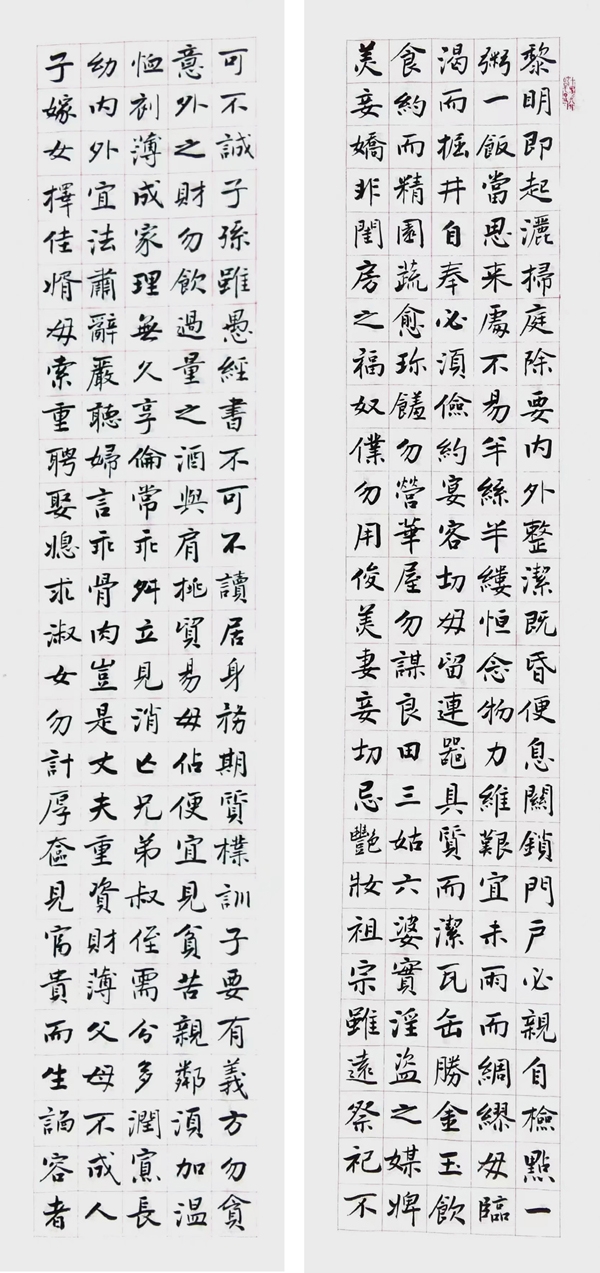 黎明即起灑掃庭除要內外整潔既昏便息關鎖門戶必親自檢點一
粥一飯當思来處不易半絲半縷恒念物力維艱宜未雨而綢繆毋臨
渴而掘井自奉必須儉約宴客切毋留連器具質而潔瓦缶勝金玉飲
食約而精園蔬愈珍饈勿營華屋勿謀良田三姑六婆實淫盜之媒婢
美妾嬌非閨房之福奴僕勿用俊美妻妾切忌艷妝祖宗雖遠祭祀不
可不誠子孫雖愚經書不可不讀居身務期質樸訓子要有義方勿貪
意外之財勿飲過量之酒與肩挑貿易毋佔便宜見貧苦親鄰須加溫
恤刻薄成家理無久享倫常乖舛立見消亡兄弟叔侄需分多潤寡長
幼內外宜法肅辭嚴聽婦言乖骨肉豈是丈夫重資財薄父母不成人
子嫁女擇佳婿毋索重聘娶媳求淑女勿計厚奩見富貴而生諂容者